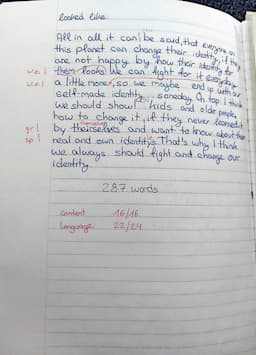 looked like.
All in all it can be said, that everyone on
this planet can change their identity, if they
are not happy by how their identity or
w.c.! them looks. We can fight for it everyday
w.c.! a little more, so we maybe end up with our
self-made identity someday. On top I think
we should show kids and older people,
how to change it, if they never learned
gr! by theirselves and want to know about their
sp! real and own identitys. That's why I think
we always should fight and change our
identity.
287 words
content 16/16
language 22/24